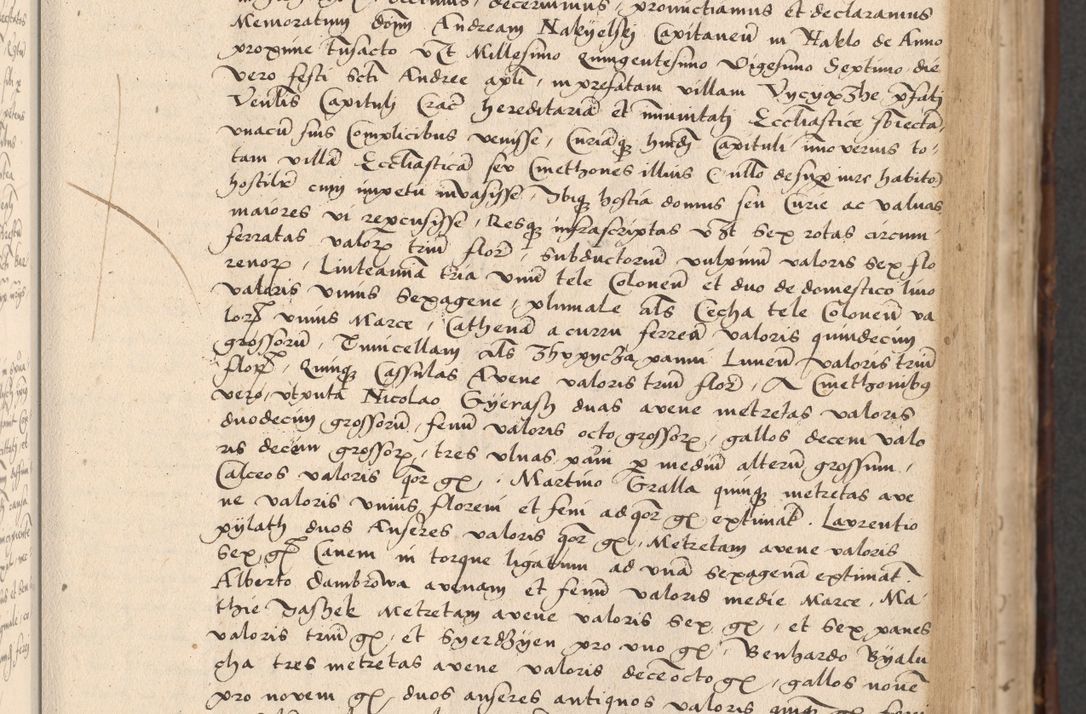 decernimus, pronuctiamus et declaramus
Memoratum dom̄ Andream Nakÿelskj Capitaneū in Naklo de Anno
proxime trāsacto vt̄ Millesimo Quingentesimo Vigesimo Septimo die
vero festi sctī Andree apl̄i, in prefatam villam Vÿcÿąxzhe pr̄fatj
Ven̄lis Capitulj Crac̄ hereditariā et īmunitatj Eccl̄iastice sbiectā
vnacū suis Complicibus venisse, Curiāq; huīdj Capituli imo verius to-
tam villā Eccl̄iasticā seu Cmethones illius
hostilit̄ cum impetu invasisse, Ibiq; hostia domus seu Curie ac valuas
maiores vi repcussisse, Resq; infrascriptas vt̄ Sex rotas circum
ferratas valor̄ triū flor̄, Subductoriū vulpinū valoris sex flo
renor̄, Linteamīa tria vnū tele Coloneū et duo de domestico lino
valoris vnius Sexagene, plumale al̄s Cecha tele Coloneū va
lor̄ vnius Marce, Cathenā a curru ferreā valoris quindecim
grossorū, Tunicellam al̄s panni Luneū valoris triū
flor̄, Quinq; Cassulas Avene valoris triū flor̄, A Cmethonibq
vero, vtputa Nicolao Gÿerash duas avene metretas valoris
duodecim grossorū, fenū valoris octo grossor̄, gallos decem valo
ris decem grossor̄, tres vlnas pān p mediū alterū grossum,
Calceos valoris qr̄ gr̄, Martino Gralla quinq; metretas ave
ne valoris vnius floreni et feni ad qr̄ gr̄ extimat̄. Laurentio
Pÿlath duos Anseres valoris qr̄ gr̄, Metretam avene valoris
sex gr̄ Canem in torque ligatum ad vnā Sexagenā extimat̄.
Alberto Dambrowa avenam et fenū valoris medie Marce, Ma
thie Jashek Metretam avene valoris sex gr̄, et sex panes
valoris triū gr̄, et Syerdzÿen pro vno gr̄, Benhardo Bÿalu
cha tres metretas avene valoris deceocto gr̄, gallos novē
pro novem gr̄, duos anseres antiquos valoris quīq; gr̄ feni